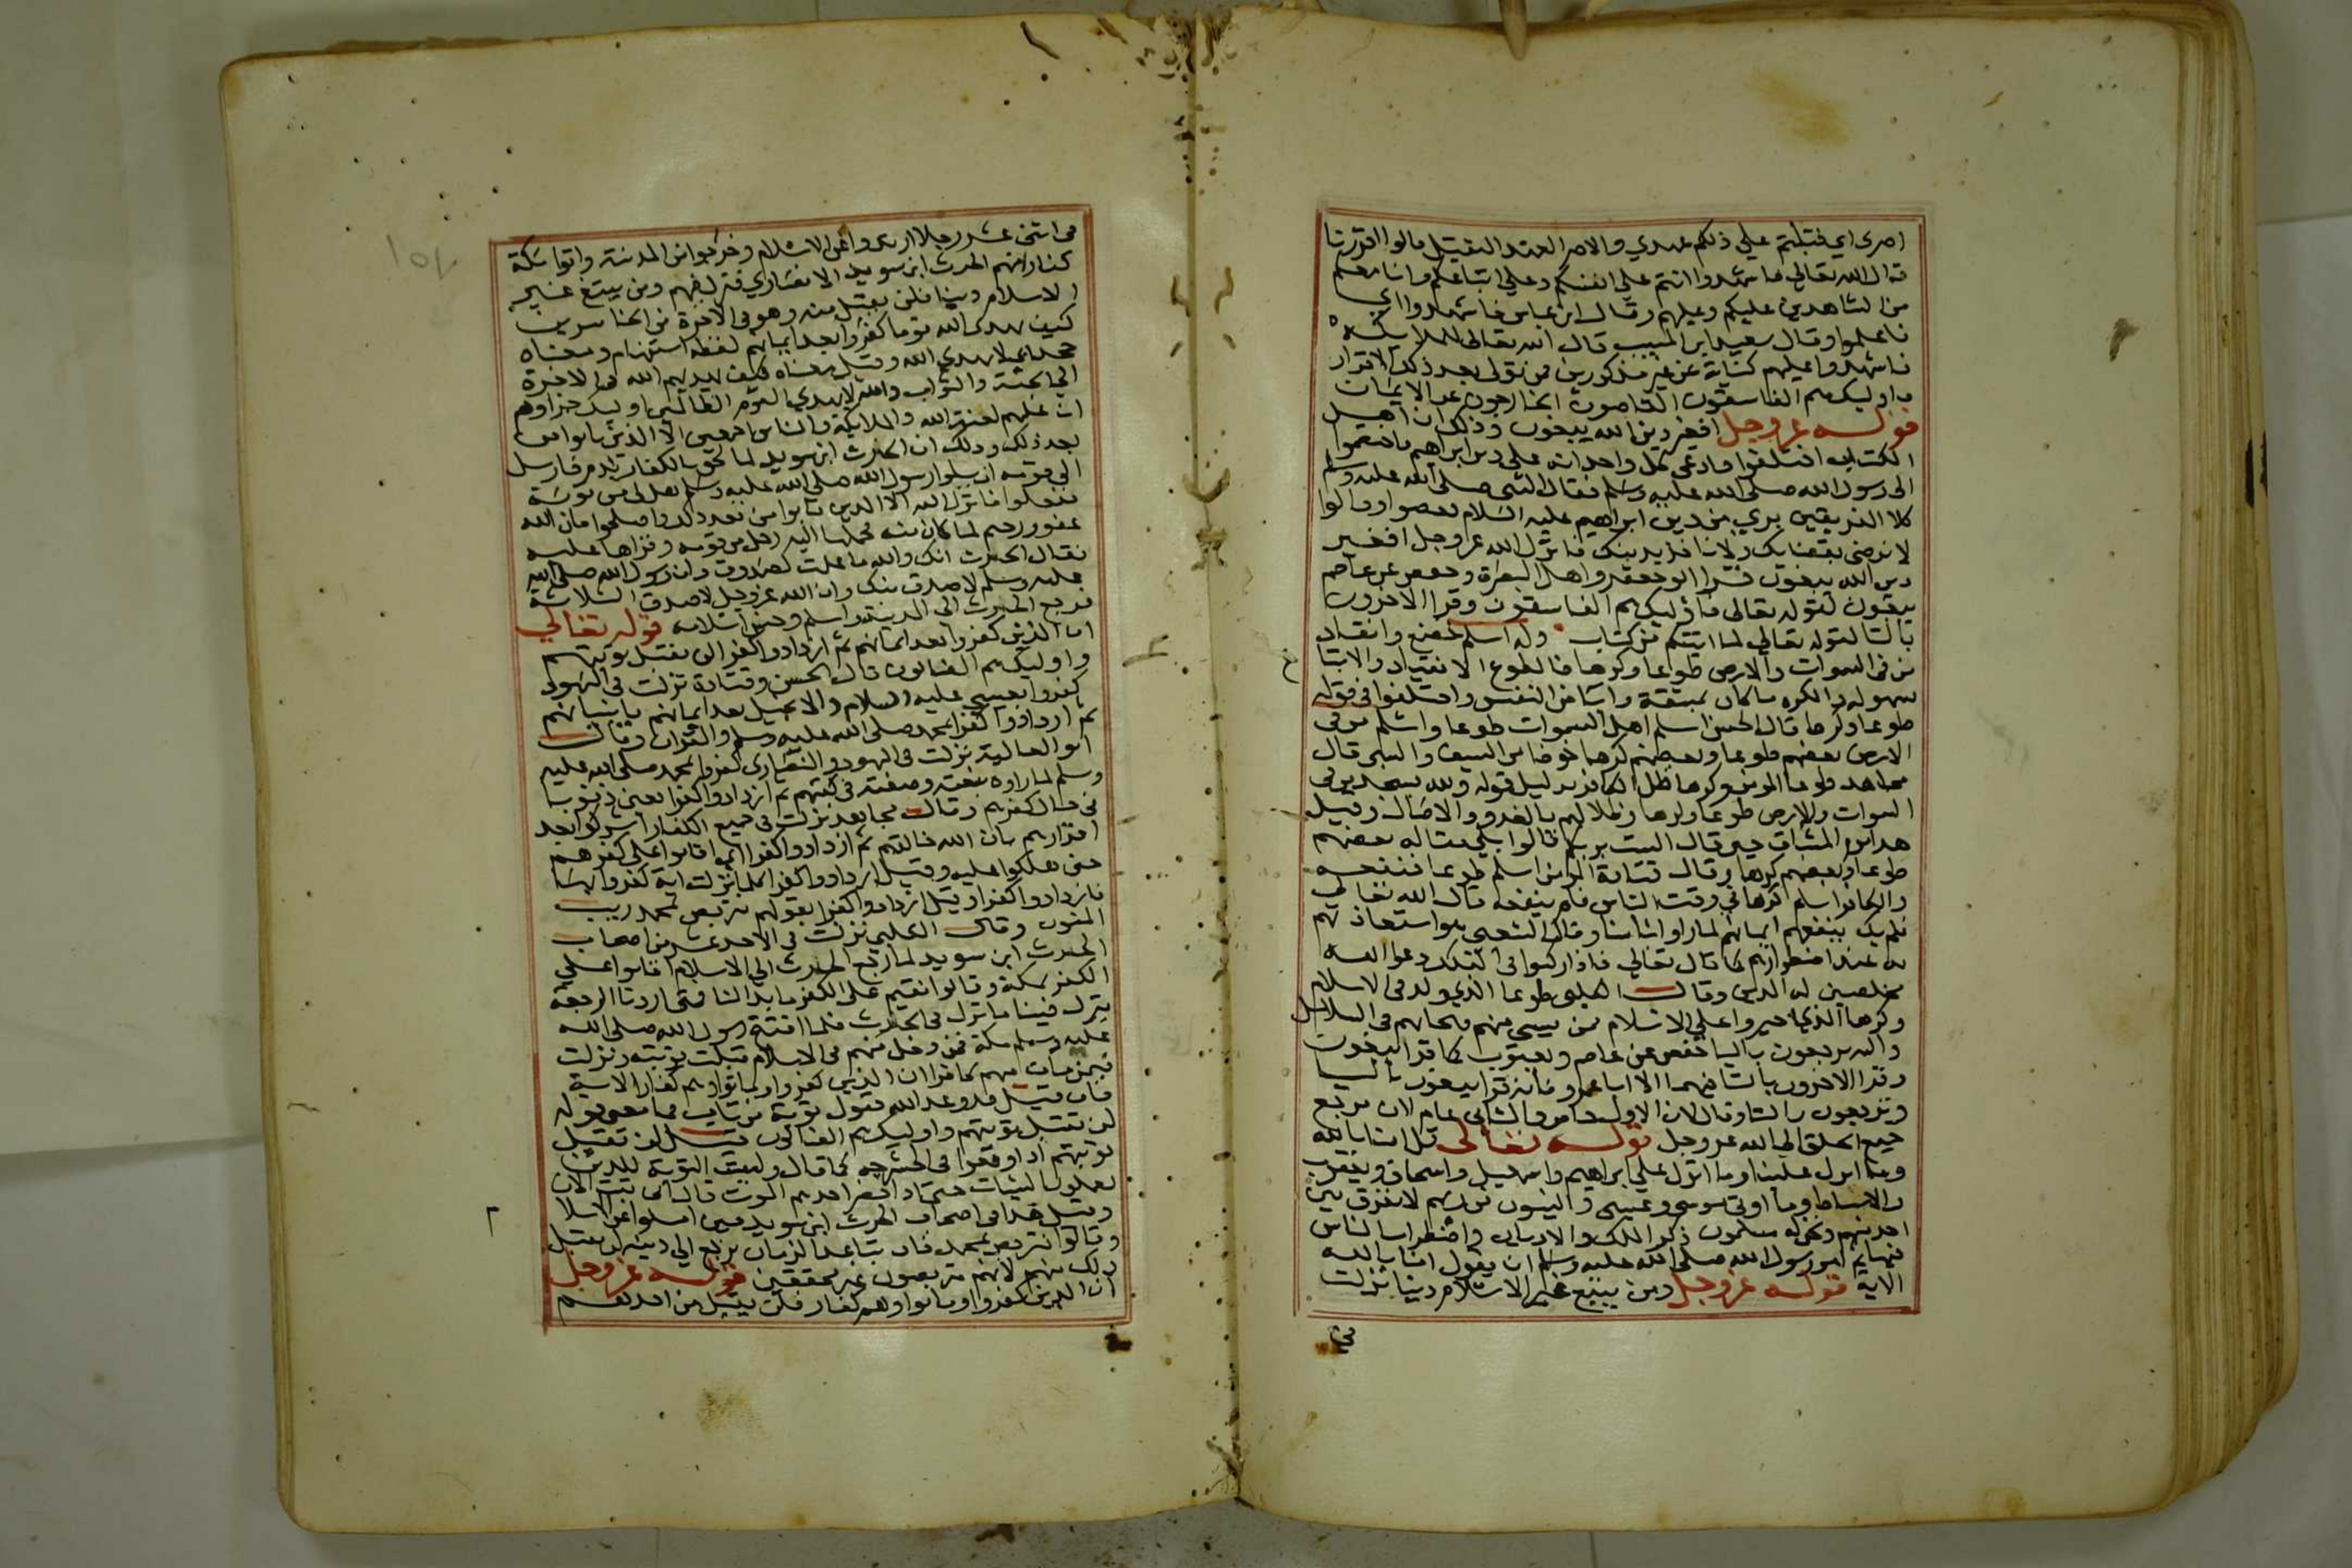 اصري اي قبلتم علي ذلكم عهدي والاصر العهد الثقيل قالوا اقررنا
قال الله تعالي فاشهدوا انتم علي انفسكم وعلي اتباعكم وانا معكم
من الشاهدين عليكم وعليهم وقال ابن عباس فاشهدوا اي
فاعلموا وقال سعيد ابن المسيب قال الله تعالي للملايكة
فاشهدوا عليهم كناية عن غير مذكورين فمن تولي بعد ذلك الاقرار
فاوليك هم الفاسقون العاصون الخارجون عن الايمان
قوله عز وجل افغير دين الله يبغون وذلك ان اهل
الكتاب اختلفوا فادعي كل واحد انه علي دين ابراهيم فاختصموا
الي رسول الله صلي الله عليه وسلم فقال النبي صلي الله عليه وسلم
كلا الفريقين بري من دين ابراهيم عليه السلام فغضبوا وقالوا
لا نرضي بقضايك ولا ناخذ بدينك فانزل الله عز وجل افغير
دين الله يبغون قرا ابو جعفر واهل البصرة وحفص عن عاصم
يبغون لقوله تعالي فاوليك هم الفاسقون وقرا الاخرون
بالتا لقوله تعالي لما اتيتكم من كتاب وله اسلم خضع وانقاد
من في السموات والارض طوعا وكرها فالطوع الانقياد والاتباع
بسهولة والكره ما كان بمشقة واباء من النفس واختلفوا في قوله
طوعا وكرها قال الحسن اسلم اهل السموات طوعا واسلم من في
الارض بعضهم طوعا وبعضهم كرها خوفا من السيف والسبي قال
مجاهد طوعا المومن وكرها ظل الكافر بدليل قوله ولله يسجد من في
السموات والارض طوعا وكرها وظلالهم بالغدو والاصال وقيل
هذا يوم الميثاق حين قال الست بربكم قالوا بلي فقاله بعضهم
طوعا وبعضهم كرها وقال قتادة المومن اسلم طوعا فنفعه
والكافر اسلم كرها في وقت الباس فلم ينفعه قال الله تعالي
فلم يك ينفعهم ايمانهم لما راوا باسنا وقال الشعبي هو استعاذتهم
به عند اضطرارهم كما قال تعالي فاذا ركبوا في الفلك دعوا الله
مخلصين له الدين وقال الكلبي طوعا الذي ولد في الاسلام
وكرها الذين اجبروا علي الاسلام ممن يسبي منهم فيجابهم في السلاسل
واليه يرجعون باليا حفص عن عاصم ويعقوب كما قرا يبغون
وقرا الاخرون بالتا فيهما الا ابا عمرو فانه قرا يبغون باليا
وترجعون بالتا وقال لان الاول خاص والثاني عام لان مرجع
جميع الخلق الي الله عز وجل قوله تعالي قل امنا بالله
وما انزل علينا وما انزل علي ابراهيم واسمعيل واسحاق ويعقوب
والاسباط وما اوتي موسي وعيسي والنبيون من ربهم لا نفرق بين
احد منهم ونحن له مسلمون ذكر الملل والاديان واضطراب الناس
فيها ثم امر رسول الله صلي الله عليه وسلم ان يقول امنا بالله
الاية قوله عز وجل ومن يبتغ غير الاسلام دينا نزلت
في
في اثني عشر رجلا ارتدوا عن الاسلام وخرجوا من المدينة واتوا مكة
كفارا منهم الحرث ابن سويد الانصاري فنزل فيهم ومن يبتغ غير
الاسلام دينا فلن يقبل منه وهو في الاخرة من الخاسرين
كيف يهدي الله قوما كفروا بعد ايمانهم لفظه استفهام ومعناه
جحد اي لا يهدي الله وقيل معناه كيف يهديهم الله في الاخرة
الي الجنة والثواب والله لا يهدي القوم الظالمين اوليك جزاوهم
ان عليهم لعنة الله والملايكة والناس اجمعين الا الذين تابوا من
بعد ذلك وذلك ان الحارث ابن سويد لما لحق بالكفار ندم فارسل
الي قومه ان سلوا رسول الله صلي الله عليه وسلم هل لي من توبة
ففعلوا فانزل الله الا الذين تابوا من بعد ذلك واصلحوا فان الله
غفور رحيم لما كان منه فحملها اليه رجل من قومه وقراها عليه
فقال الحرث انك والله ما علمت لصدوق وان رسول الله صلي الله
عليه وسلم لاصدق منك وان الله عز وجل لاصدق الثلاثة
فرجع الحرث الي المدينة واسلم وحسن اسلامه قوله تعالي
ان الذين كفروا بعد ايمانهم ثم ازدادوا كفرا لن تقبل توبتهم
واوليك هم الضالون قال الحسن وقتادة نزلت في اليهود
كفروا بعيسي عليه السلام والانجيل بعد ايمانهم بانبيائهم
ثم ازدادوا كفرا بمحمد صلي الله عليه وسلم والقران وقال
ابو العالية نزلت في اليهود والنصاري كفروا بمحمد صلي الله عليه
وسلم لما راوه بنعته وصفته في كتبهم ثم ازدادوا كفرا يعني ذنوبا
في حال كفرهم وقال مجاهد نزلت في جميع الكفار اشركوا بعد
اقرارهم بان الله خالقهم ثم ازدادوا كفرا اي اقاموا علي كفرهم
حتي هلكوا عليه وقيل ازدادوا كفرا كلما نزلت اية كفروا بها
فازدادوا كفرا وقيل ازدادوا كفرا بقولهم نتربص بمحمد ريب
المنون وقال الكلبي نزلت في الاحد عشر من اصحاب
الحرث ابن سويد لما رجع الحرث الي الاسلام اقاموا علي
الكفر بمكة وقالوا نقيم علي الكفر ما بدا لنا فمتي اردنا الرجعة
ينزل فينا ما نزل في الحرث فلما افتتح رسول الله صلي الله
عليه وسلم مكة فمن دخل منهم في الاسلام قبلت توبته ونزلت
فيمن مات منهم كافرا ان الذين كفروا وماتوا وهم كفار الاية
فان قيل قد وعد الله قبول توبة من تاب فما معني قوله
لن تقبل توبتهم واوليك هم الضالون قيل لن تقبل
توبتهم اذا وقعوا في الحشرجة كما قال وليست التوبة للذين
يعملون السيئات حتي اذا حضر احدهم الموت قال اني تبت الان
وقيل هذا في اصحاب الحرث ابن سويد حين امسكوا عن الاسلام
وقالوا نتربص بمحمد فان ساعده الزمان نرجع الي دينه لن يقبل
ذلك منهم لانهم متربصون غير محققين قوله عز وجل
ان الذين كفروا وماتوا وهم كفار فلن يقبل من احدهم